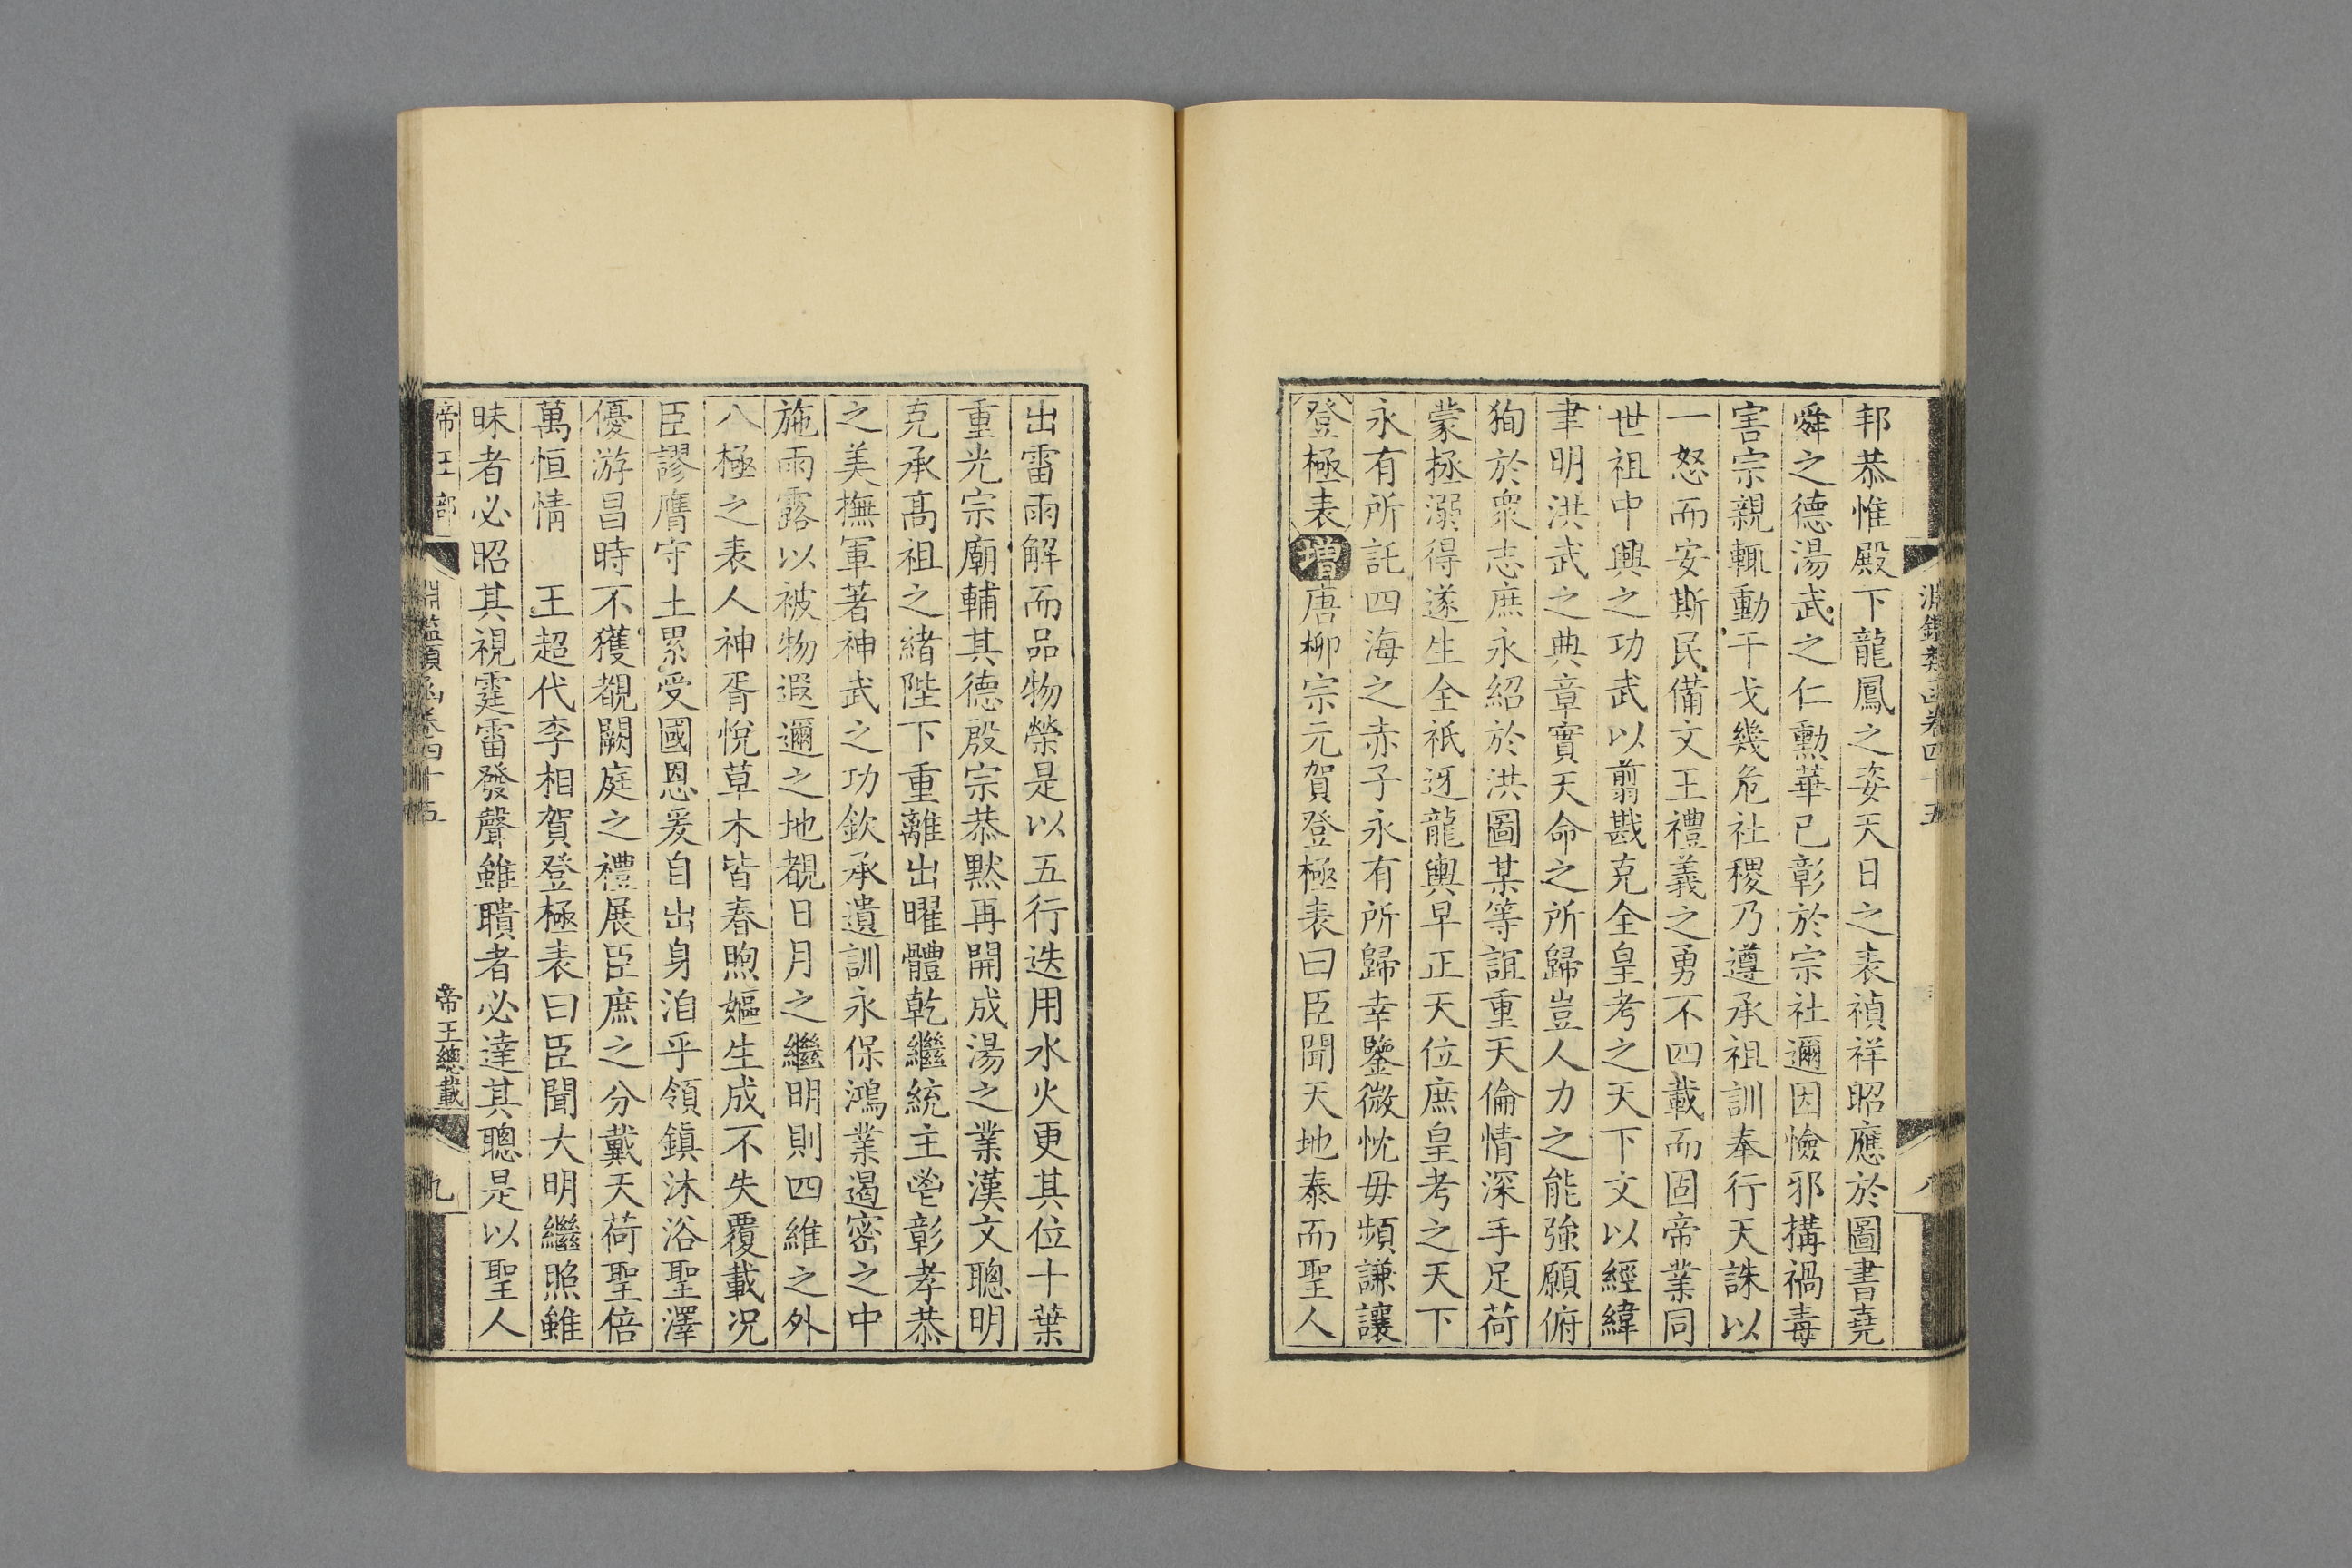 淵鑑類函卷四十五
八
邦恭惟殿下龍鳳之姿天日之表禎祥昭應於圖書堯
舜之德湯武之仁勲華已彰於宗社邇因憸邪搆禍毒
害宗親輒動干戈幾危社稷乃遵承祖訓奉行天誅以
一怒而安斯民備文王禮義之勇不四載而固帝業同
世祖中興之功武以翦戡克全皇考之天下文以經緯
聿明洪武之典章實天命之所歸豈人力之能強願俯
狥於衆志庶永紹於洪圖某等誼重天倫情深手足荷
蒙拯溺得遂生全祇迓龍輿早正天位庶皇考之天下
永有所託四海之赤子永有所歸幸鑒微忱毋頻謙讓
登極表增唐柳宗元賀登極表曰臣聞天地泰而聖人
出雷雨解而品物榮是以五行迭用水火更其位十葉
重光宗廟輔其德殷宗恭默再開成湯之業漢文聰明
克承高祖之緒陛下重離出曜體乾繼統主鬯彰孝恭
之美撫軍著神武之功欽承遺訓永保鴻業遏密之中
施雨露以被物遐邇之地覩日月之繼明則四維之外
八極之表人神胥悅草木皆春煦嫗生成不失覆載况
臣謬膺守土累受國恩爰自出身洎乎領鎮沐浴聖澤
優游昌時不獲覩闕庭之禮展臣庶之分戴天荷聖倍
萬恒情　王超代李相賀登極表曰臣聞大明繼照雖
昧者必昭其視霆雷發聲雖聵者必達其聰是以聖人
帝王部
淵鑑類函卷四十五
帝王總載
九